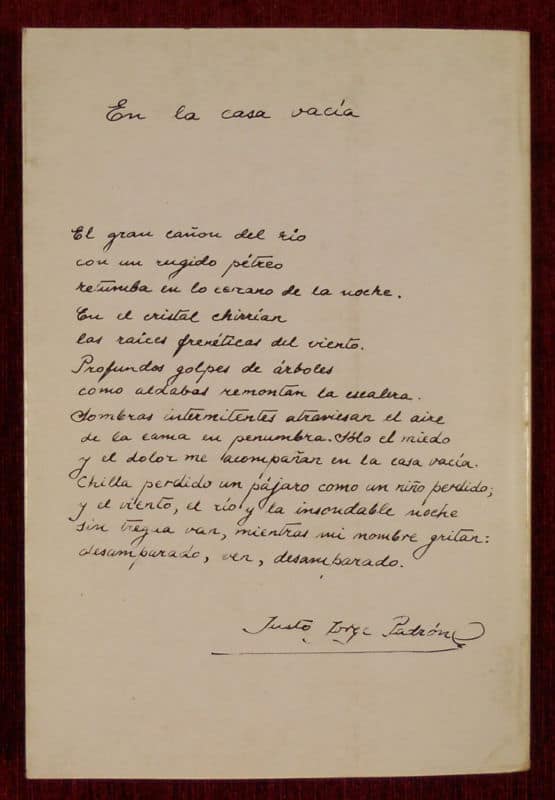 En la casa vacía
El gran cañon del río
con un rugido pétreo
retumba en lo cercano de la noche.
En el cristal chirrían
las raíces frenéticas del viento.
Profundos golpes de árboles
como aldabas remontan la escalera.
Sombras intermitentes atraviesan el aire
de la cama en penumbra. Sólo el miedo
y el dolor me acompañan en la casa vacía.
Chilla perdido un pájaro como un niño perdido;
y el viento, el río y la insondable noche
sin tregua van, mientras mi nombre gritan:
desamparado, ven, desamparado.
Justo Jorge Padrón